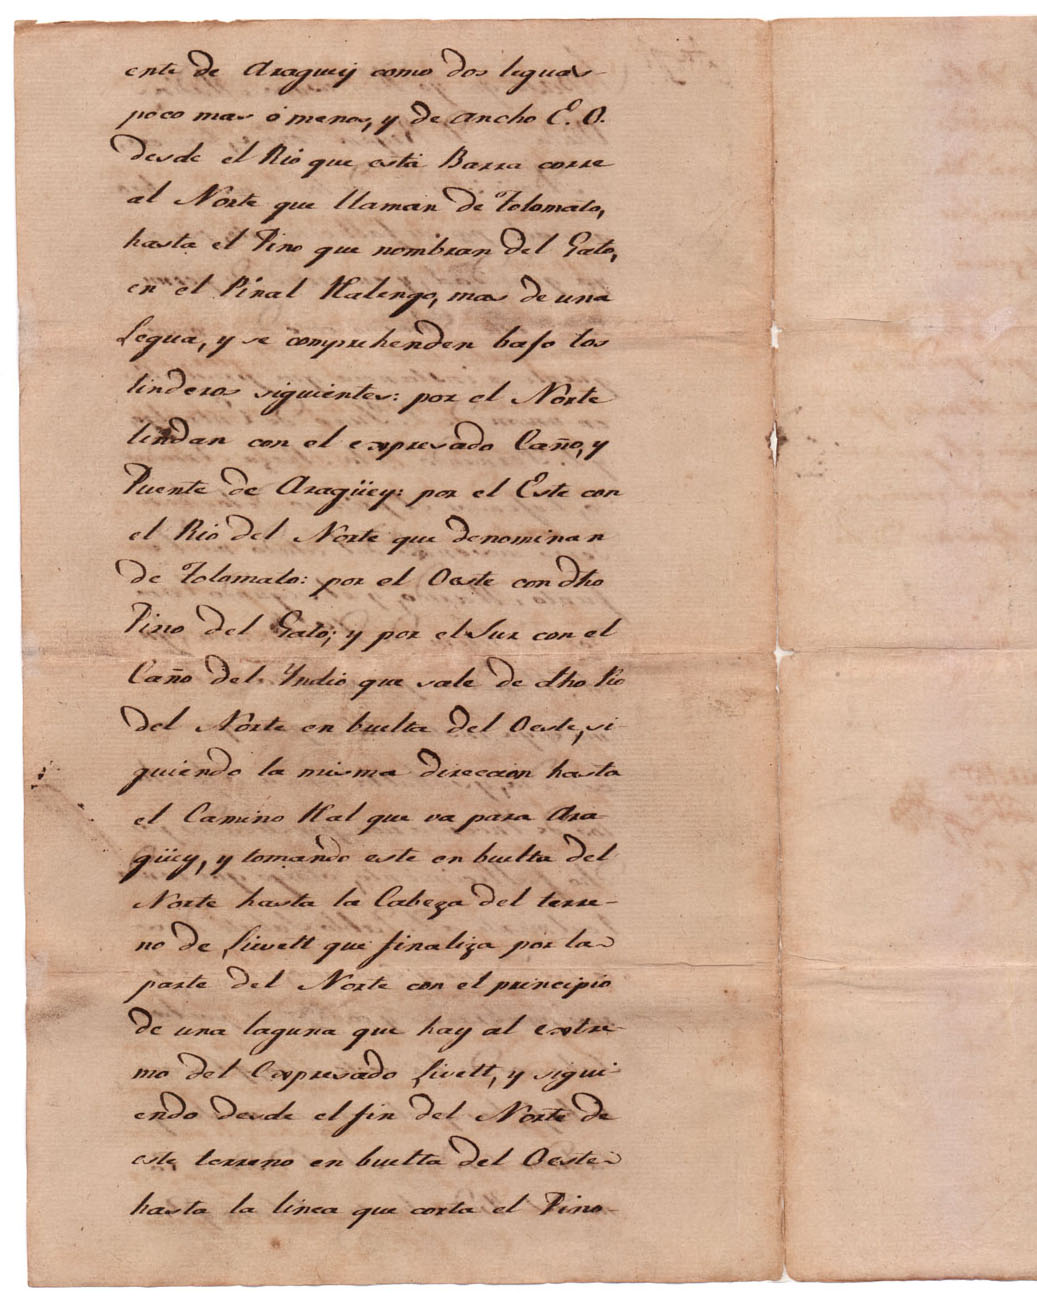 ente de Araguey como dos leguas
poco mas ó menos, y de ancho E. O.
desde el Rio que está Barra corre
al Norte que llaman de Tolomato,
hasta el Pino que nombran del Gato,
en el Pinal Halengo, mas de una
Legua, y se comprehenden bajo los
linderos siguientes: por el Norte
lindan con el expresado Caño, y
Puente de Aragüey: por el Este con
el Rio del Norte que denominan
de Tolomato: por el Oeste con dho
Pino del Gato; y por el Sur con el
Caño del Yndio que sale de dho Rio
del Norte en buelta del Oeste, si-
guiendo la misma direccion hasta
el Camino Hal que va para Ara-
güey, y tomando este en buelta del
Norte hasta la Cabeza del terre-
no de que finaliza por la
parte del Norte con el principio
de una laguna que hay al extre-
mo del Expresado y sigui-
endo desde el fin del Norte de
este terreno en buelta del Oeste
hasta la linea que corta el Pino